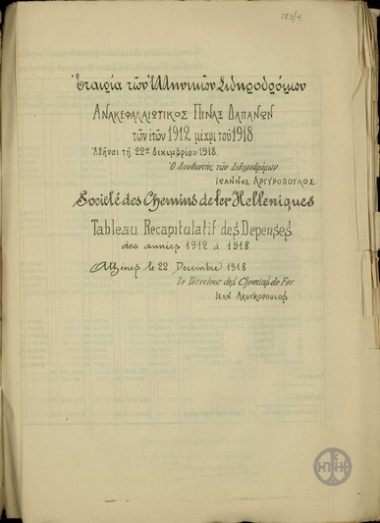 183/4
Ἑταιρία τῶν Ἑλληνικῶν Σιδηροδρόμων
ΑΝΑΚΕΦΑΛΑΙΩΤΙΚΟΣ ΠΙΝΑΞ ΔΑΠΑΝΩΝ
τῶν ἐτῶν 1912 μέχρι τοῦ 1918
Ἀθῆναι τῇ 22ᾳ Δεκεμβρίου 1918
Ὁ Διευθυντὴς τῶν Σιδηροδρόμων
ΙΩΑΝΝΗΣ ΑΡΓΥΡΟΠΟΥΛΟΣ
Société des Chemins de fer Helleniques
Tableau Recapitulatif des Depenses
des années 1912 à 1918
Athènes le 22 Decembre 1918
Le Directeur des Chemins de Fer
JEAN ARGYROPOULOS